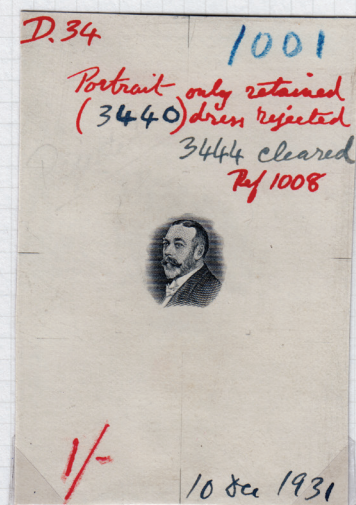 D.34
1001
Portrait only retained
(3440) dress rejected
3444 cleared
Ref 1008
1/-
10 Dec 1931